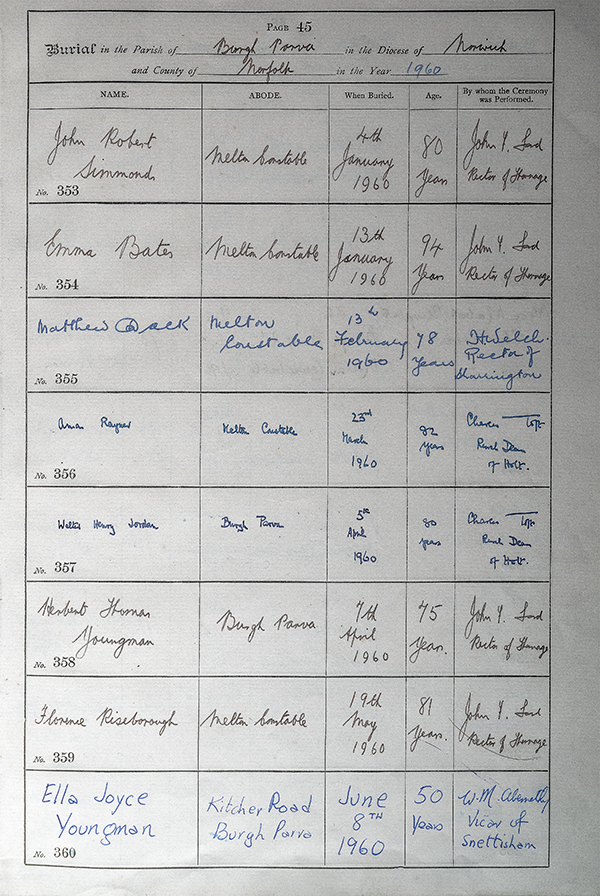 PAGE 45
Burial in the Parish of Burgh Parva in the Diocese of Norwich
and County of Norfolk in the Year 1960
NAME. ABODE. When Buried. Age. By whom the Ceremony was Performed.
John Robert
Simmonds
No. 353
Melton Constable
4th
January
1960
80
Years
John Y.
Rector of
Emma Bates
No. 354
Melton Constable
13th
January
1960
94
Years
John Y.
Rector of
Matthew Dack
No. 355
Melton
Constable
13th
February
1960
78
Years
H Welch.
Rector of
No. 356
Melton Constable
23rd
March
1960
82
years
Rural Dean
of Holt.
Walter Henry Jordan
No. 357
Burgh Parva
5th
April
1960
80
years
Rural Dean
of Holt.
Herbert Thomas
Youngman
No. 358
Burgh Parva
7th
April
1960
75
Years.
John Y.
Rector of
Florence Riseborough
No. 359
Melton Constable
19th
May
1960
81
Years.
John Y.
Rector of
Ella Joyce
Youngman
No. 360
Kitcher Road
Burgh Parva
June
8TH
1960
50
Years
W. M. Abernethy
Vicar of
Snettisham